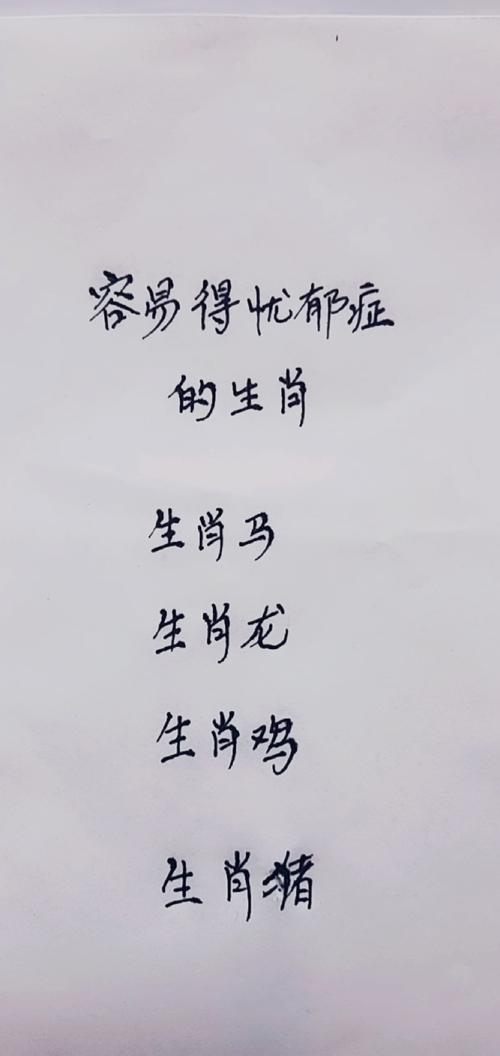 容易得忧郁症
的生肖
生肖马
生肖龙
生肖鸡
生肖猪